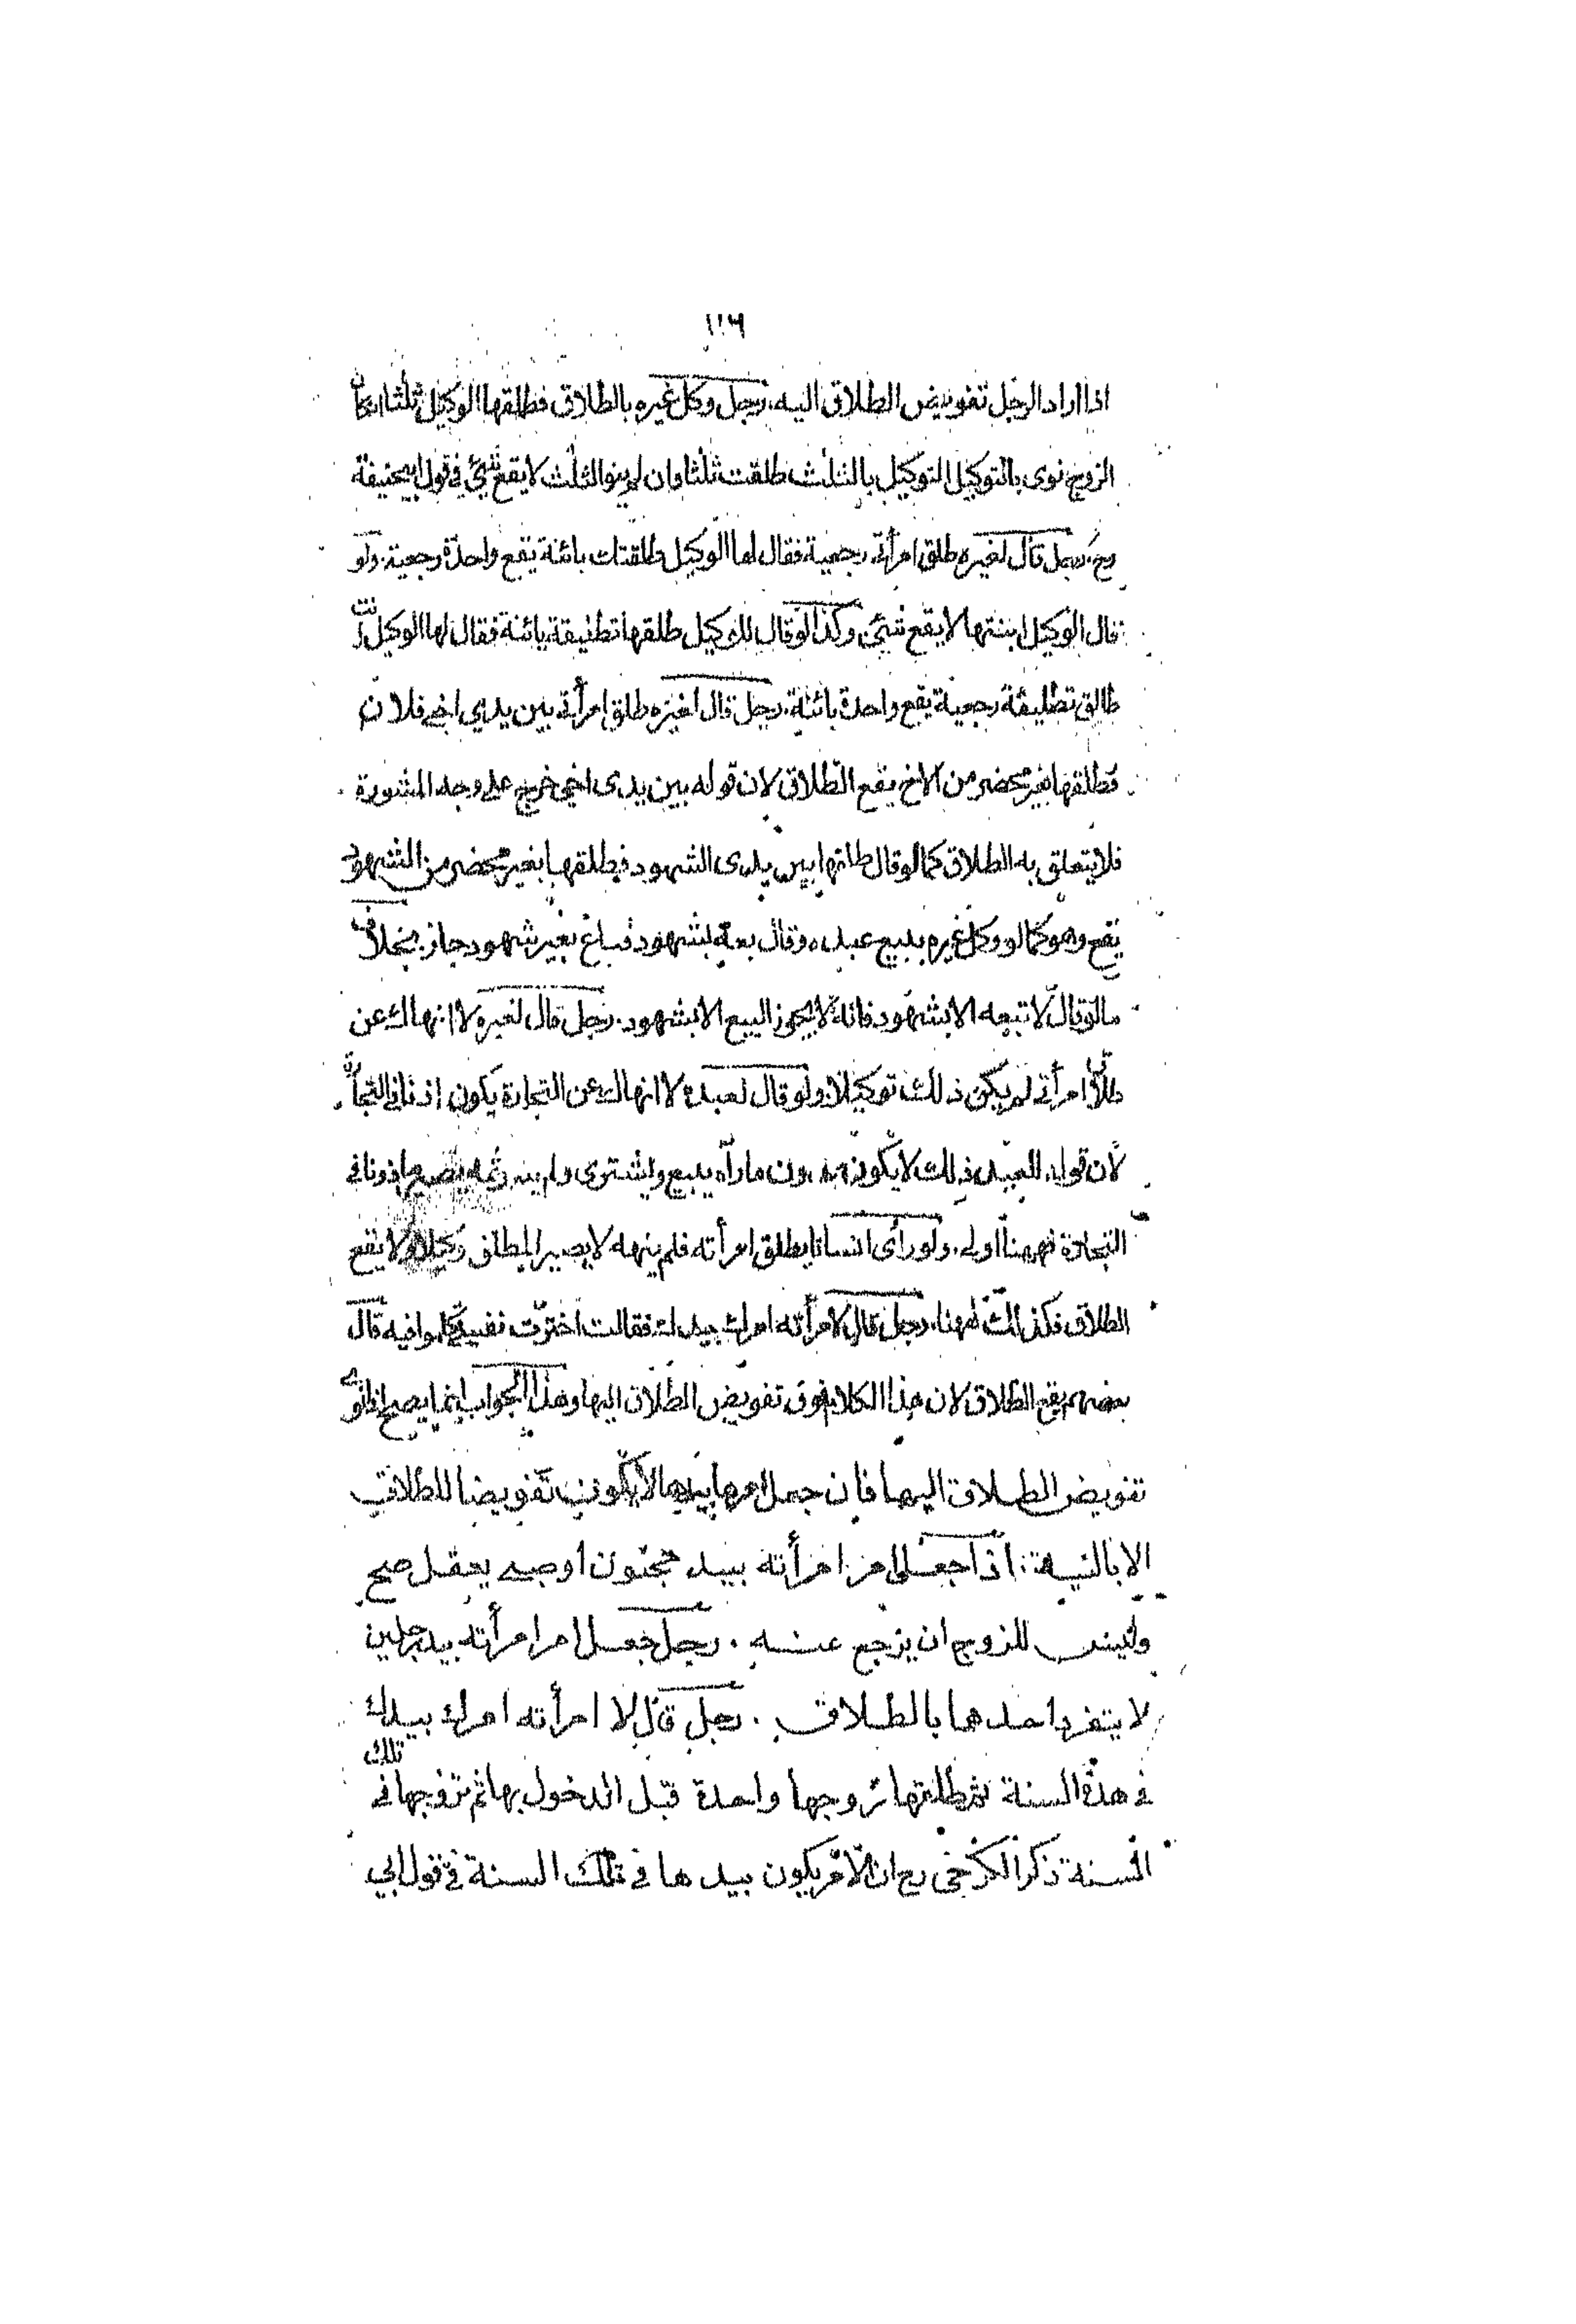 ١١٦
اذا اراد الرجل تفويض الطلاق اليه، رجل وكل غيره بالطلاق فطلقها الوكيل ثلثا ان كان
الزوج نوى بالتوكيل التوكيل بالثلث طلقت ثلثا وان لم ينو الثلث لا يقع شئ في قول ابيحنيفة
رح، رجل قال لغيره طلق امرأتي رجعية فقال لها الوكيل طلقتك بائنة يقع واحدة رجعية، ولو
قال الوكيل ابنتها لا يقع شئ، وكذا لو قال للوكيل طلقها تطليقة بائنة فقال لها الوكيل انت
طالق تطليقة رجعية يقع واحدة بائنة، رجل قال لغيره طلق امرأتي بين يدي اخي فلان
فطلقها بغير محضر من الاخ يقع الطلاق لان قوله بين يدى اخي خرج على وجه المشورة
فلا يتعلق به الطلاق كما لو قال طلقها بين يدى الشهود فطلقها بغير محضر من الشهود
يقع وهو كما لو وكل غيره ببيع عبده وقال بعه بشهود فباع بغير شهود جاز، بخلاف
ما لو قال لا تبعه الا بشهود فانه لا يجوز البيع الا بشهود، رجل قال لغيره لا انهاك عن
طلاق امرأتي لم يكن ذلك توكيلا، ولو قال لعبده لا انهاك عن التجارة يكون اذنا في التجارة
لان قوله للعبد ذلك لا يكون دون ما رآه يبيع ويشترى ولم ينهه ثمه يصير ماذونا في
التجارة فههنا اولى، ولو رأى انسانا يطلق امرأته فلم ينهه لا يصير المطلق وكيلا ولا يقع
الطلاق فكذلك ههنا، رجل قال لامرأته امرك بيدك فقالت اخترت نفسي تكلموا فيه قال
بعضهم يقع الطلاق لان هذا الكلام فوق تفويض الطلاق اليها وهذا الجواب انما يصح اذا نوى
تفويض الطلاق اليها فان جعل امرها بيدها لا يكون تفويضا للطلاق
الا بالنية، اذا جعل امر امرأته بيد مجنون او صبي يعقل صح
وليس للزوج ان يرجع عنه، رجل جعل امر امرأته بيد رجلين
لا يتفرد احدهما بالطلاق، رجل قال لا امرأته امرك بيدك
في هذه السنة ثم طلقها زوجها واحدة قبل الدخول بها ثم تزوجها في تلك
السنة ذكر الكرخي رح ان الامر يكون بيدها في تلك السنة في قول ابي